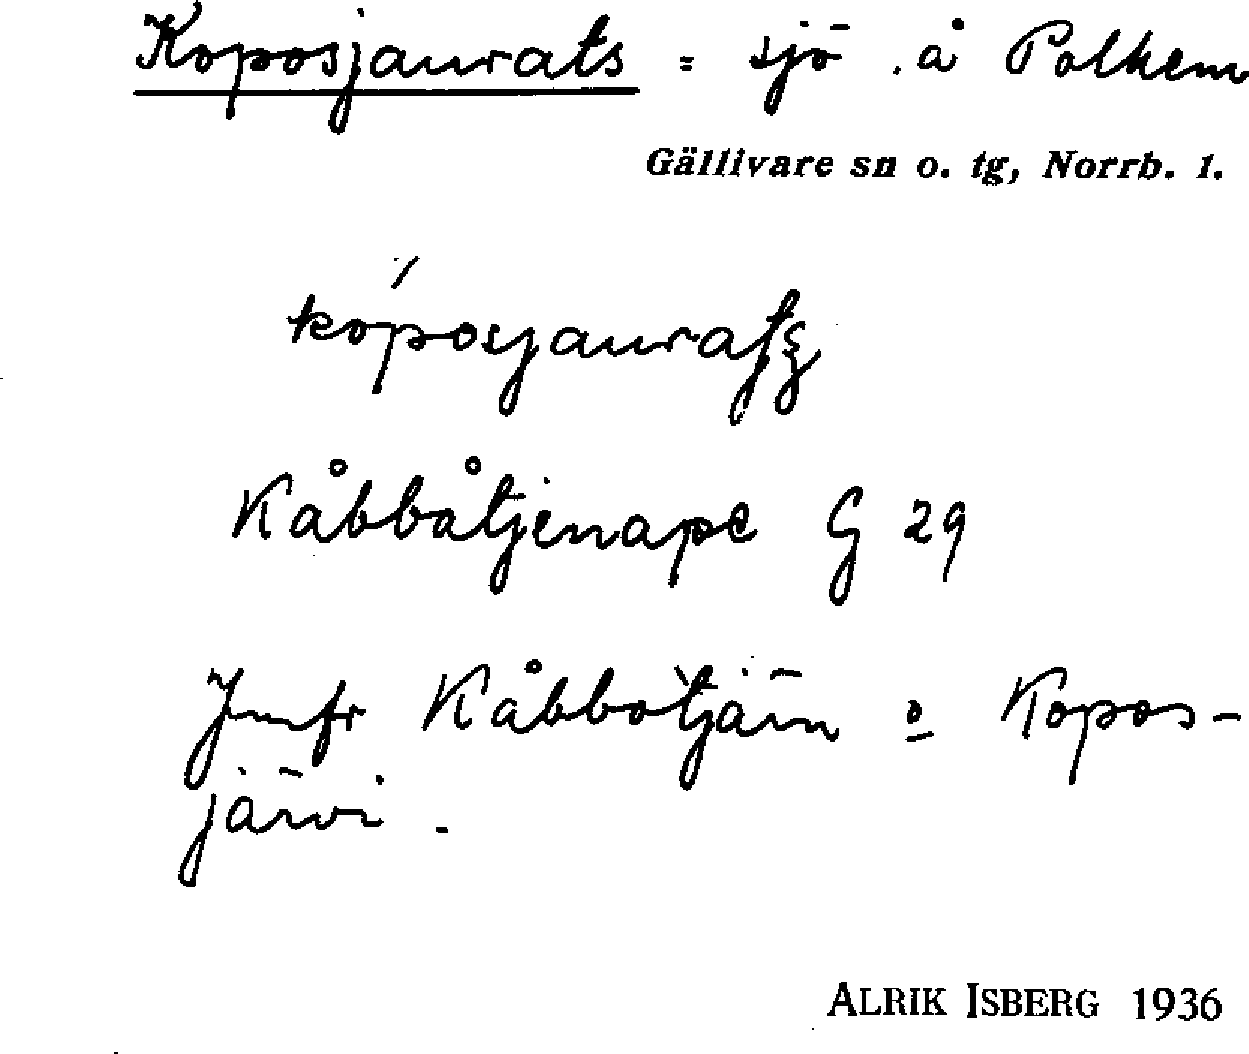 Koposjaurats = sjö. å Polkem
Gällivare sn o. tg, Norrb. l.
kóposjauratş
Kåbbåtjenape G 29
Jmfr Kåbbotjärn o Kopos-
järvi.
ALRIK ISBERG 1936